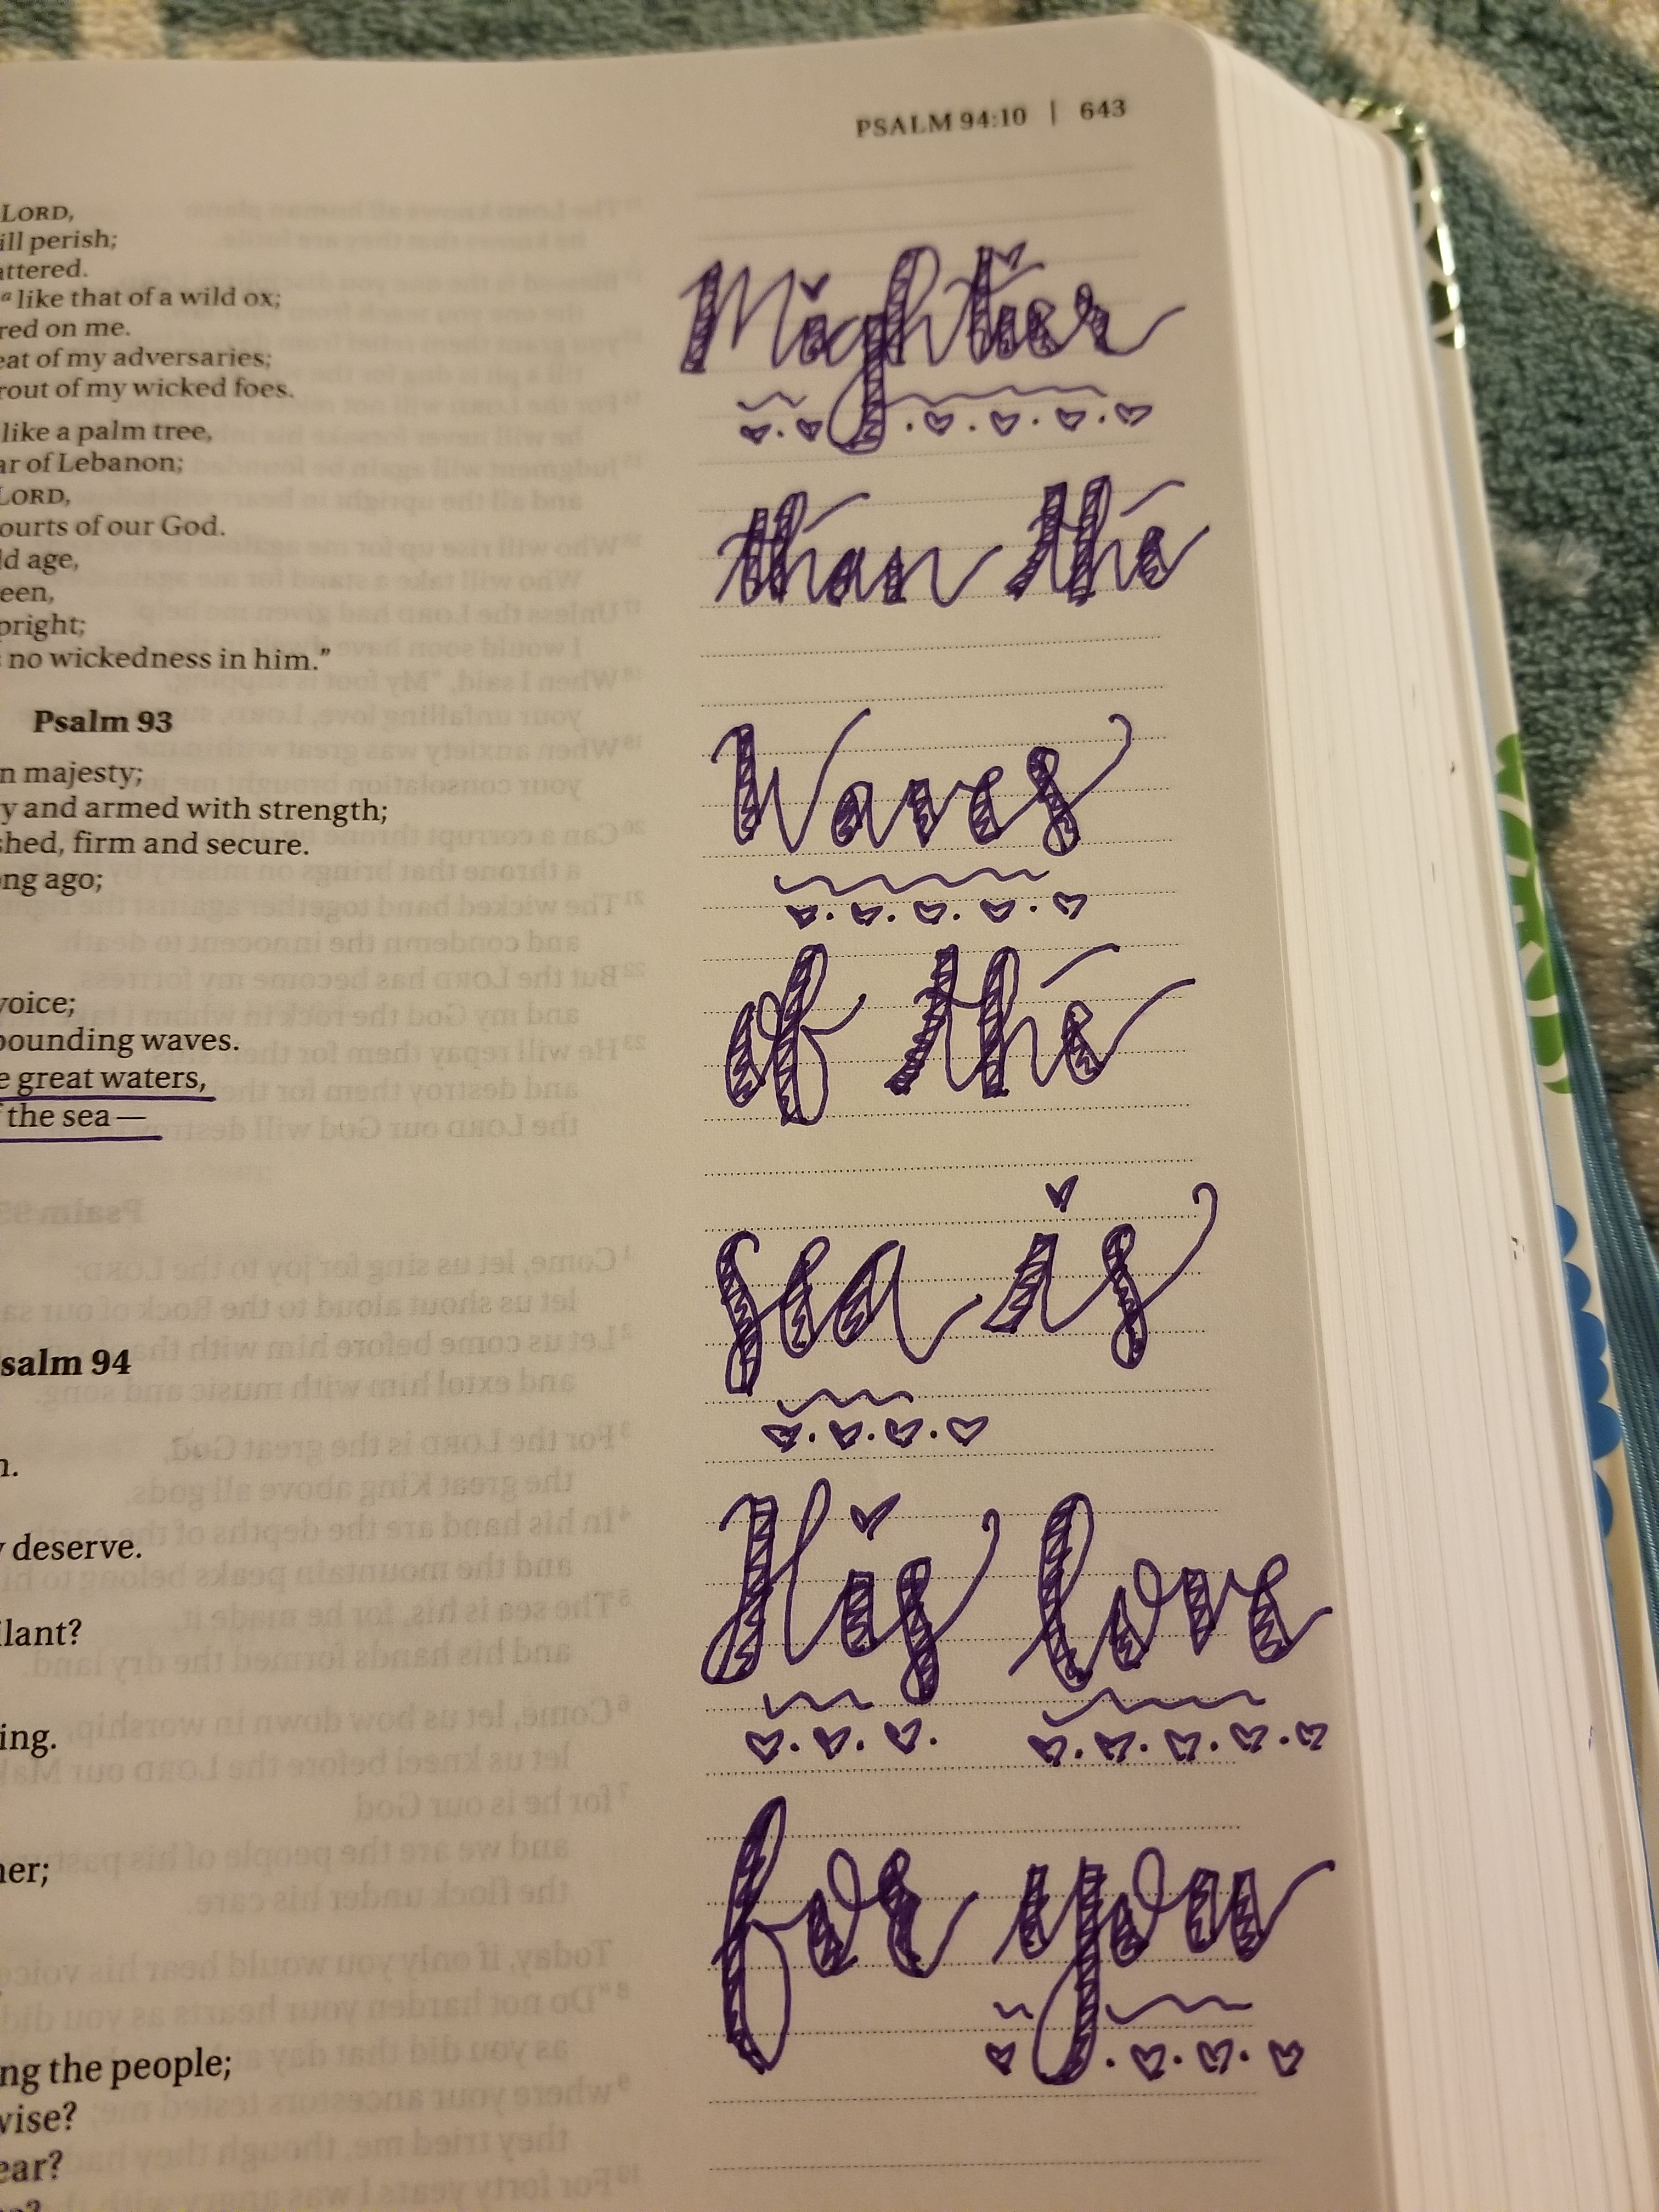 PSALM 94:10 | 643
LORD,
ill perish;
attered.
a like that of a wild ox;
red on me.
eat of my adversaries;
rout of my wicked foes.
like a palm tree,
ar of Lebanon;
LORD,
ourts of our God.
ld age,
een,
pright;
no wickedness in him.”
Psalm 93
n majesty;
y and armed with strength;
shed, firm and secure.
ng ago;
voice;
pounding waves.
e great waters,
f the sea—
salm 94
n.
y deserve.
ilant?
ing.
ner;
ng the people;
wise?
ear?
Mightier
than the
Waves
of the
sea is
His love
for you